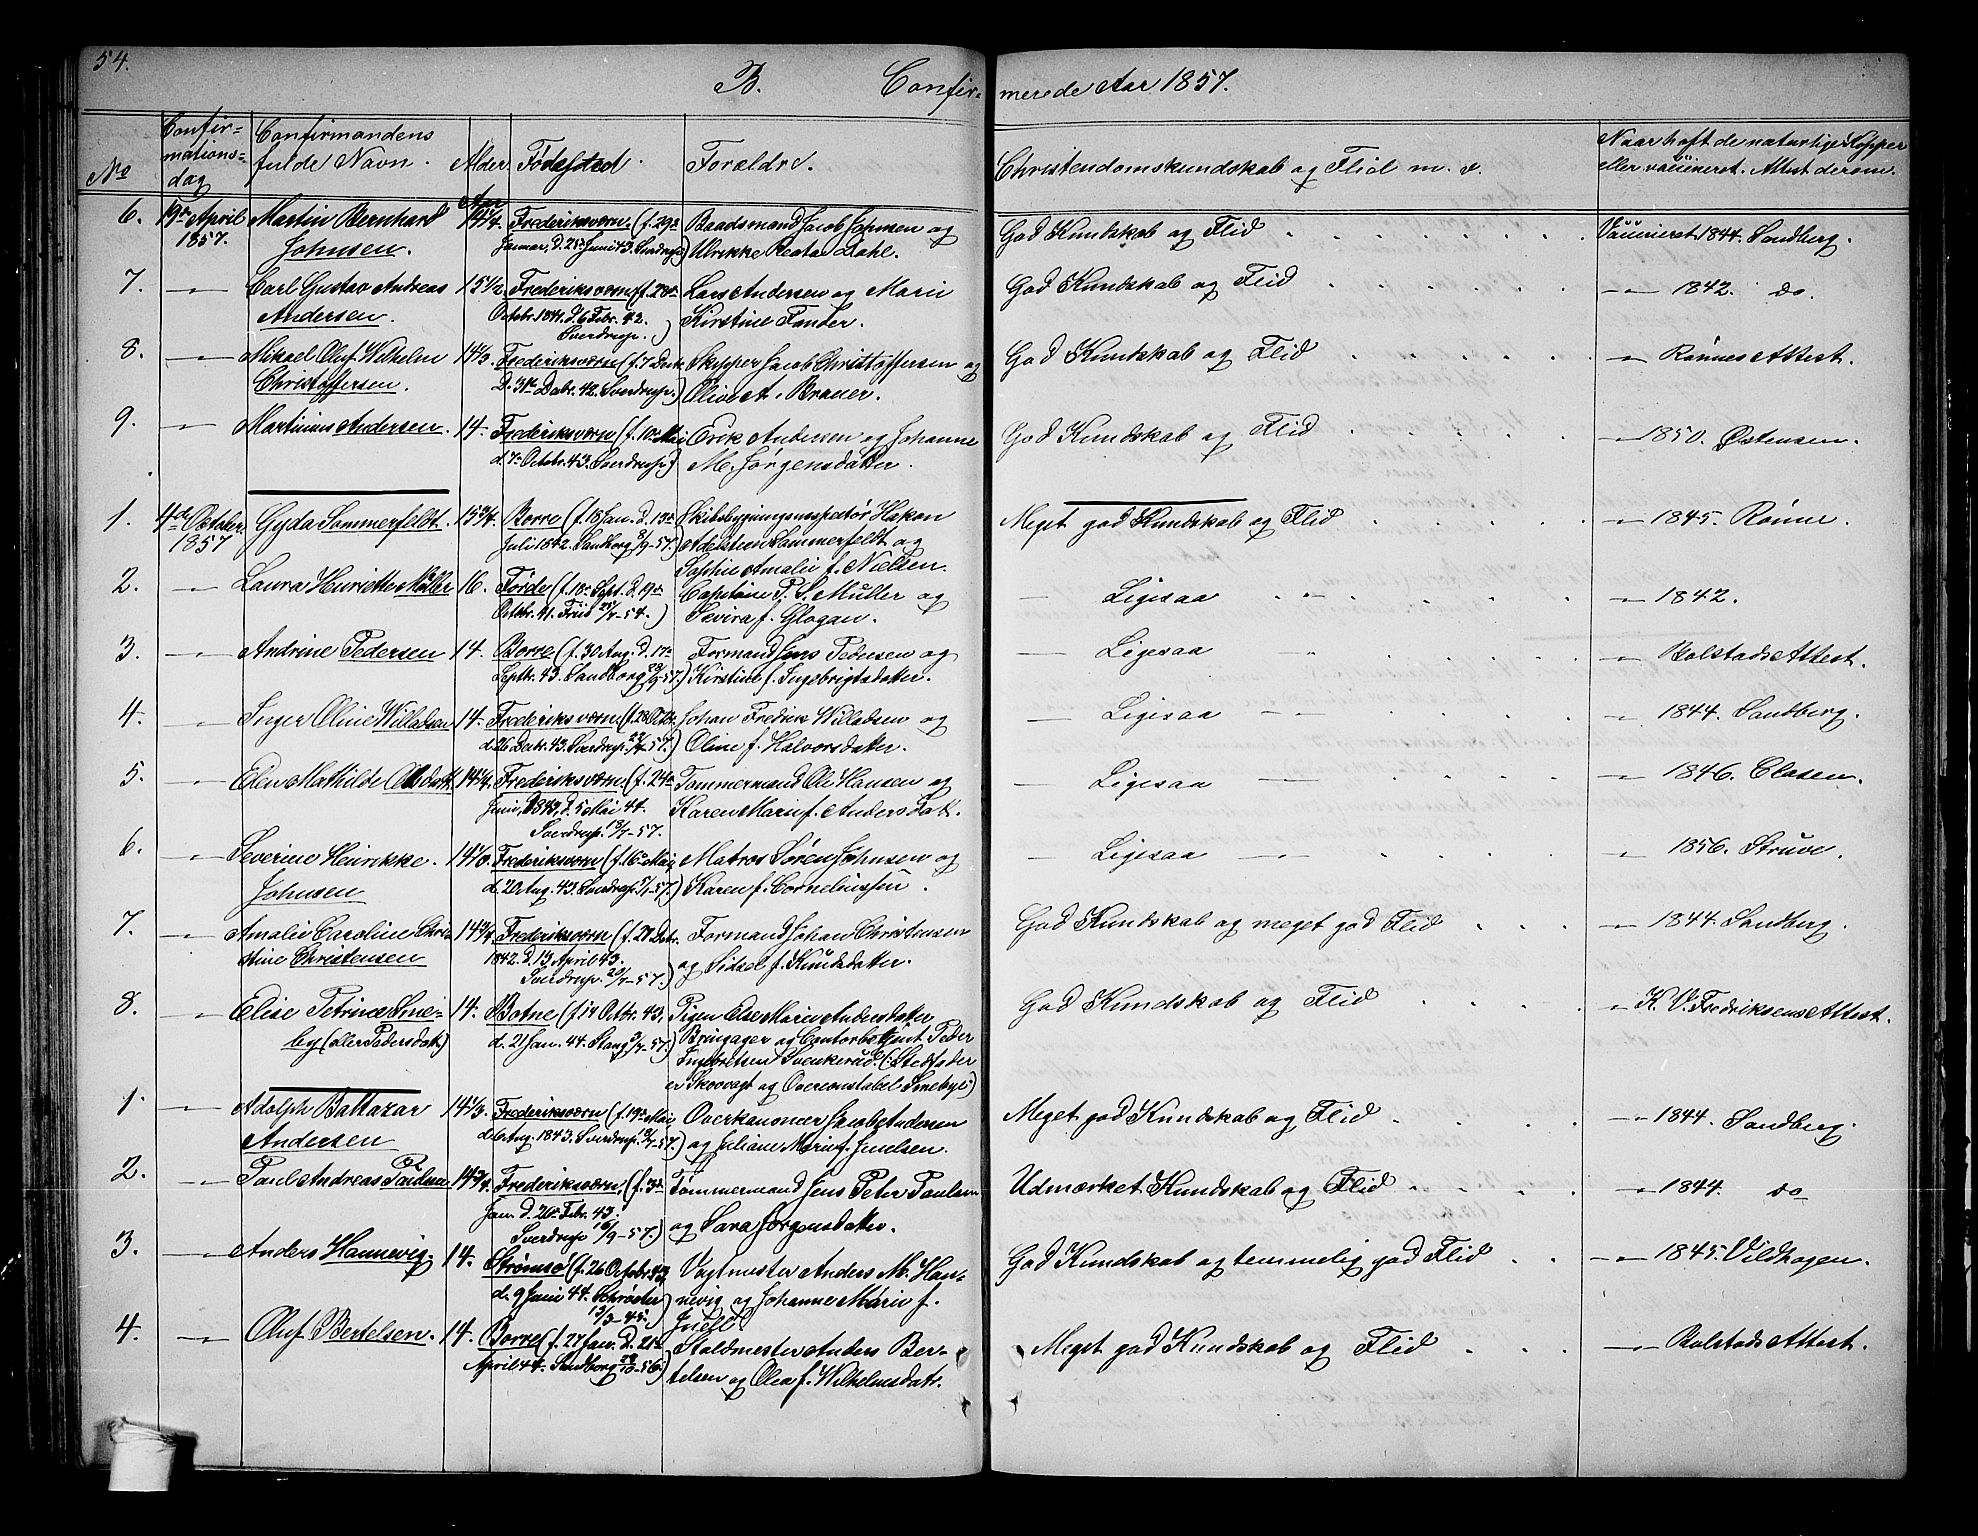 54.
B. Confir- merede Aar 1857.
No
Confir-
mations-
dag
Confirmandens
fulde Navn.
Alder.
Fødested.
Forældre.
Christendomskundskab og Flid m. v.
Naar haft de naturlige Kopper
eller vaccineret. Attest derom.
6. 19de April 1857. Martin Bernhard Johnsen. Aar 14 1/4. Frederiksværn. (f. 29de
Januar, D. 21de Juni 43. Sverdrup) Baadsmand Jacob Johnsen og
Ulrikke Beata Dahl. God Kundskab og Flid Vaccineret 1844. Sandberg.
7. -"- Carl Gustav Andreas Andersen. 15 1/2 Frederiksværn (f. 28de
Octobr. 1841. D. 6 Febr. 42.
Sverdrup.) Lars Andersen og Marie
Kirstine Fander. God Kundskab og Flid -"- 1842. do.
8. -"- Mikael Oluf Wilhelm Christoffersen. 14 1/3 Frederiksværn (f. 7 Decbr.
D. 31te Decbr. 42. Sverdrup.) Skipper Jacob Christoffersen og
Olive A. Brauer. God Kundskab og Flid -"- Rønnes Attest.
9. -"- Martinius Andersen. 14. Frederiksværn (f. 10de Mai
d. 7de Octobr. 43. Sverdrup) Erik Andersen og Johanne
M. Jørgensdatter. God Kundskab og Flid -"- 1850. Østensen.
1. 4de October 1857 Gyda Sommerfeldt. 15 3/4. Borre (f. 18 Jan. d. 19de
Juli 1842. Sandborg 8/9-57.) Skibsbygningsinspectør Hakon
Adelsteen Sommerfeldt og
Sophie Amalie f. Nielsen. Meget god Kundskab og Flid -"- 1845. Rønne.
2. -"- Laura Henriette Müller 16. Førde (f. 18de Sept. D. 19de
Octobr. 41. Friis -54.) Capitaine P. S. Müller og
Sevira f. Glogan. - Ligesaa -"- -"- 1842.
3. -"- Andrine Pedersen 14. Borre (f. 30 Aug. D. 17de
Septbr. 43. Sandborg 23/9-57.) Formand Jens Pedersen og
Kirstine f. Ingebrigtsdatter. - Ligesaa -"- -"- Bolstads Attest.
4. -"- Inger Oline Willadsen 14. Frederiksværn (f. 28 Octbr.
d. 26 Decbr. 43. Sverdrup. -57.) Johan Fredrik Willadsen og
Oline f. Halvorsdatter. - Ligesaa -"- -"- 1844. Sandberg.
5. -"- Elen Mathilde Olsdatt. 14 1/4. Frederiksværn. (f. 24de
Juni, 1843, D. 5 Mai 44.
Sverdrup. 13/7-57. Tømmermand Ole Hansen og
Karen Marie f. Andersdat. - Ligesaa -"- -"- 1846. Clasen.
6. -"- Severine Henrikke Johnsen 14 1/3. Frederiksværn (f. 16de Mai
d. 20 Aug. 43. Sverdrup. -57.) Matros Søren Johnsen og
Karen f. Corneliussen. - Ligesaa -"- -"- 1856. Struve.
7. -"- Amalie Caroline Chris-
tine Christensen 14 3/4 Frederiksværn (f. 27 Decbr.
1842. D. 13 April 43.
Sverdrup. 20/7-57.) Formand Johan Christensen
og Sidsel f. Knudsdatter. God Kundskab og meget god Flid -"- 1844. Sandberg.
8. -"- Elise Petrine Sme-
by (eller Pedersdatt.) 14. Botne (f. 14 Octbr. 43.
d. 21 Jan. 44. Stang -57.) Pigen Else Marie Andersdatter
Bringager og Contorbetjent Peder
Ingbretsen Svenkerud. (Stedfader
er Skovvogt og Overconstabel Smeby) God Kundskab og Flid -"- K. V. Fredriksens Attest.
1. -"- Adolph Baltazar Andersen 14 1/3. Frederiksværn (f. 19de Mai
d. 6 Aug. 1843. Sverdrup. 13/7-57.) Overkanoner Jacob Andersen
og Juliane Marie f. Juulsen. Meget god Kundskab og Flid -"- 1844. Sandberg.
2. -"- Paul Andreas Paulsen 14 3/4. Frederiksværn, (f. 3de
Jan. D. 26de Febr. 43.
Sverdrup 16/9-57.) Tømmermand Jens Peter Paulsen
og Sara Jørgensdatter. Udmærket Kundskab og Flid -"- 1844. do
3. -"- Anders Hannevig. 14. Strømsø (f. 26 Octobr. 43,
d. 9 Juni 44. Schrøder
13/3-45.) Vagtmester Anders M. Han-
nevig og Johanne Marie f.
Juell. God Kundskab og temmelig god Flid -"- 1845. Vildhagen.
4. -"- Oluf Bertelsen. 14. Borre (f. 27 Jan. D. 21de
April 44. Sandborg 28/10-56.) Staldmester Anders Ber-
telsen og Olea f. Wilhelmsdatr. Meget god Kundskab og Flid -"- Bolstads Attest.